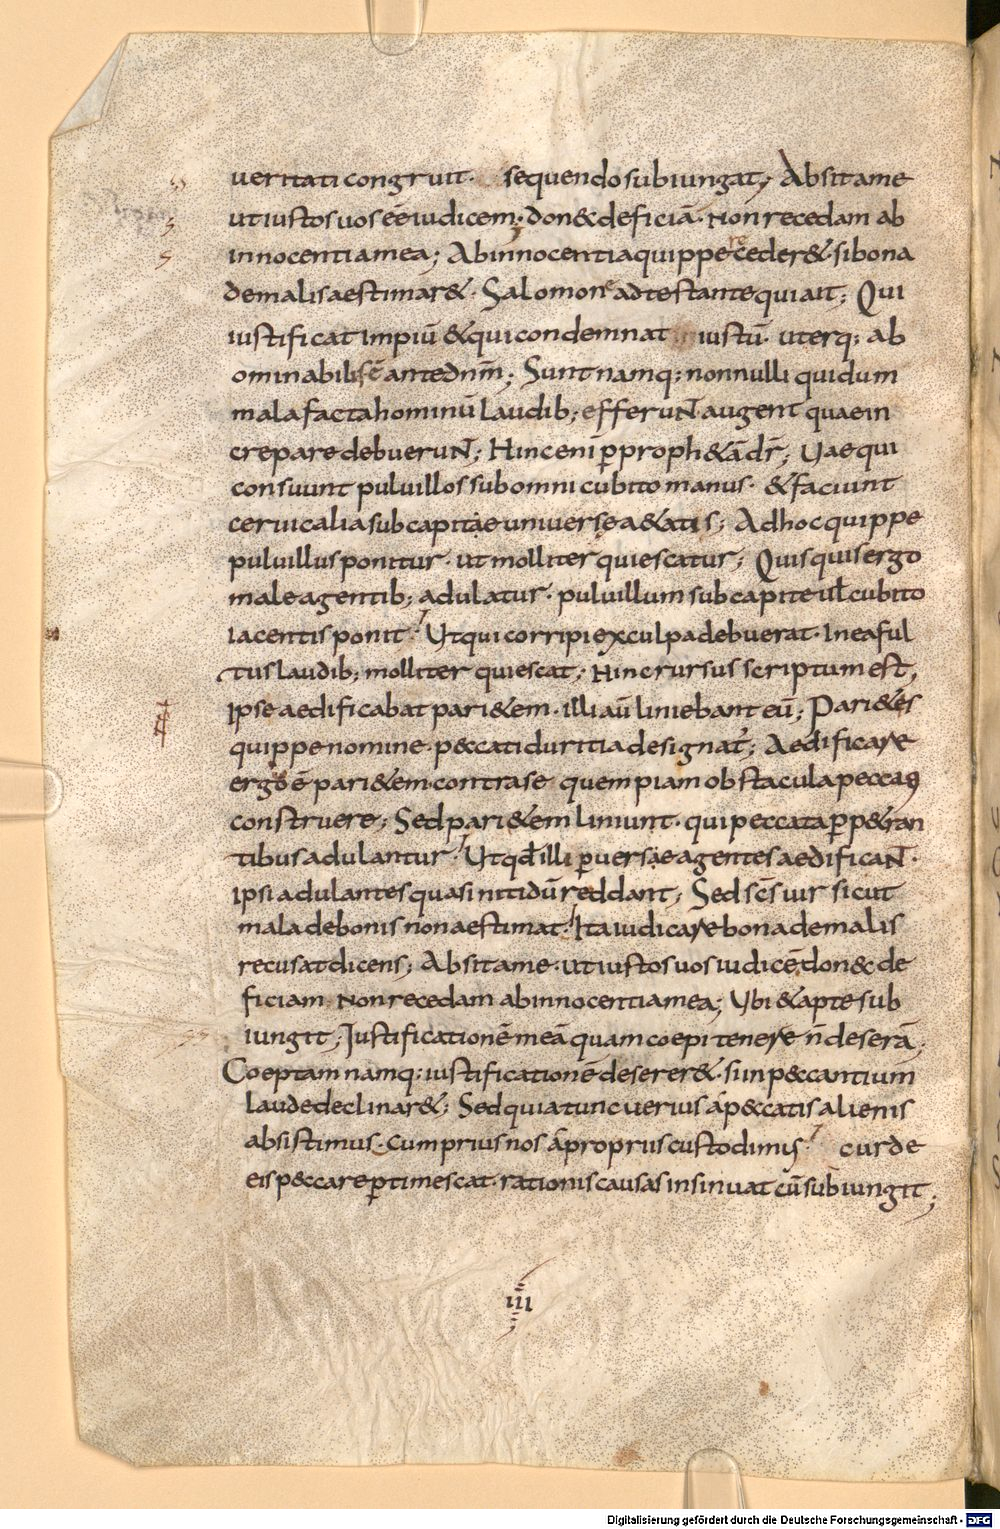 ueritati congruit· sequendo subiungat; Absit a me
ut iustos uos eē iudicem· Don& deficiā· Non recedam ab
innocentia mea; Ab innocentia quippe receder&· si bona
de malis aestimar&· Salomone adtestante qui ait; Qui
iustificat impiū & qui condemnat iustū· uterq; ab
ominabilis ē ante dnm̄; Sunt namq; nonnulli qui dum
mala facta hominū laudib; efferuNt augent quae in
crepare debueruNt; Hinc eni̅ ꝑ proph&ā dr̄; Uae qui
consuunt puluillos sub omni cubito manus· & faciunt
ceruicalia sub capitae uniuersę a&atis; Ad hoc quippe
puluillus ponitur· ut molliter quiescatur; Quisquis ergo
male agentib; adulatur· puluillum sub capite ul̄ cubito
iacentis ponit· Ut qui corripi ex culpa debuerat· In ea ful
tus laudib; molliter quiescat; Hinc rursus scriptum est,
Ipse aedificabat pari&em· illi au̅ liniebant eū; Pari&es
quippe nomine· peccati duritia designat᷑; Aedificare
ergo ē pari&em· contra se quempiam obstacula peccatis
construere; Sed pari&em liniunt· qui peccata ꝑp&ran
tibus adulantur· Ut qd̄ illi ꝑuersae agentes aedificaNt·
ipsi adulantes quasi nitidū reddant; Sed sc̄s uir sicut
mala de bonis non aestimat· Ita iudicare bona de malis
recusat dicens; Absit a me· ut iustos uos iudicē don&c de
ficiam· Non recedam ab innocentia mea; Ubi & apte sub
iungit; Iustificationē meā quam coepi tenere n̄ deserā;
Coeptam namq; iustificationē deserer&· si in p&ccantium
laude declinar&; Sed quia tunc uerius á p&ccatis alienis
absistimus· Cum prius nos á propriis custodimus· cur de
eis p&ccare ꝑtimescat· rationis causas insinuat cū subiungit;
iii
Digitalisierung gefördert durch die Deutsche Forschungsgemeinschaft - DFG